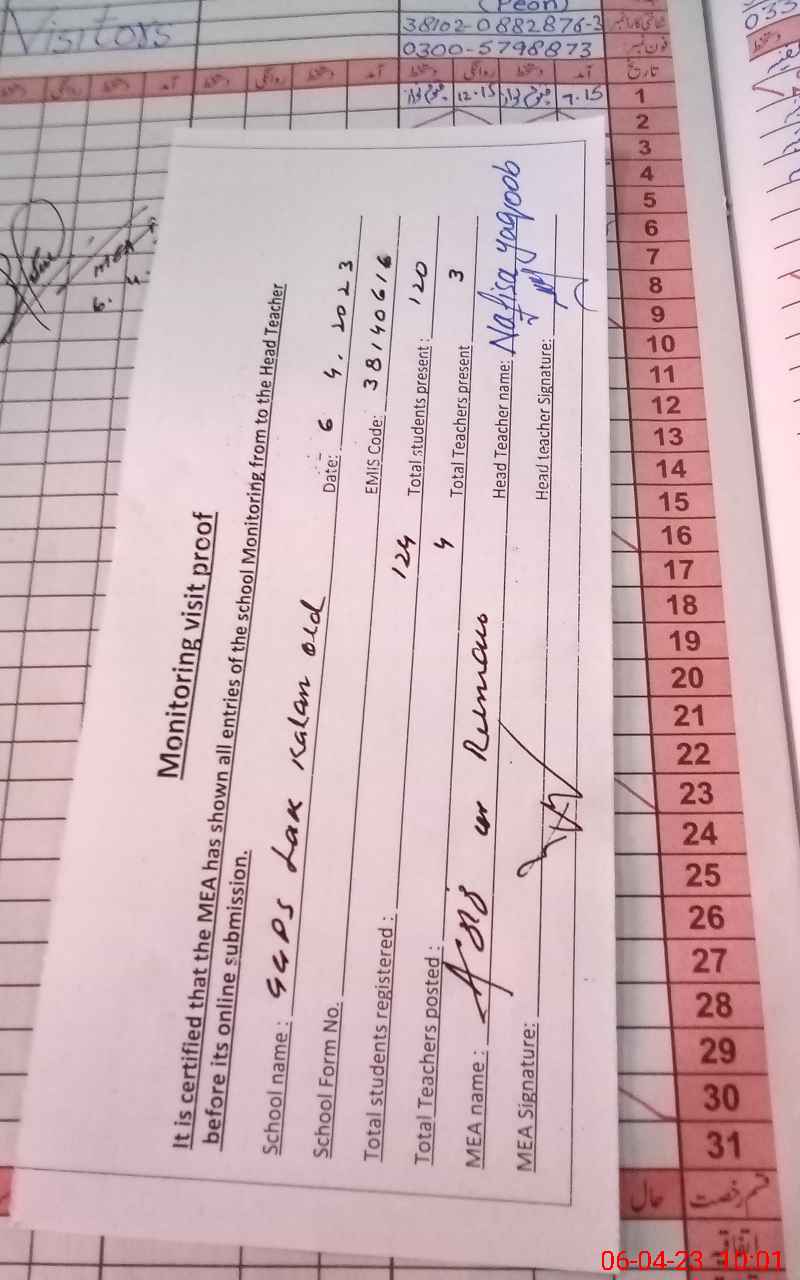 Visitors
(Peon)
38102-0882876-3
0300-5798873
تاریخ
آمد
دستخط
روانگی
دستخط
آمد
دستخط
روانگی
دستخط
آمد
7.15
12.15
1
2
3
4
5
6
7
8
9
10
11
12
13
14
15
16
17
18
19
20
21
22
23
24
25
26
27
28
29
30
31
حال
قسم رخصت
اتفاقیہ
MEA
6. 4.
Monitoring visit proof
It is certified that the MEA has shown all entries of the school Monitoring from to the Head Teacher
before its online submission.
School name: GGPS Lak Kalan old Date: 6 4. 2023
School Form No. EMIS Code: 38140616
Total students registered: 124 Total students present: 120
Total Teachers posted: 4 Total Teachers present 3
MEA name: ur Rehman Head Teacher name: Nafisa yaqoob
MEA Signature: Head teacher Signature:
033
06-04-23 10:01